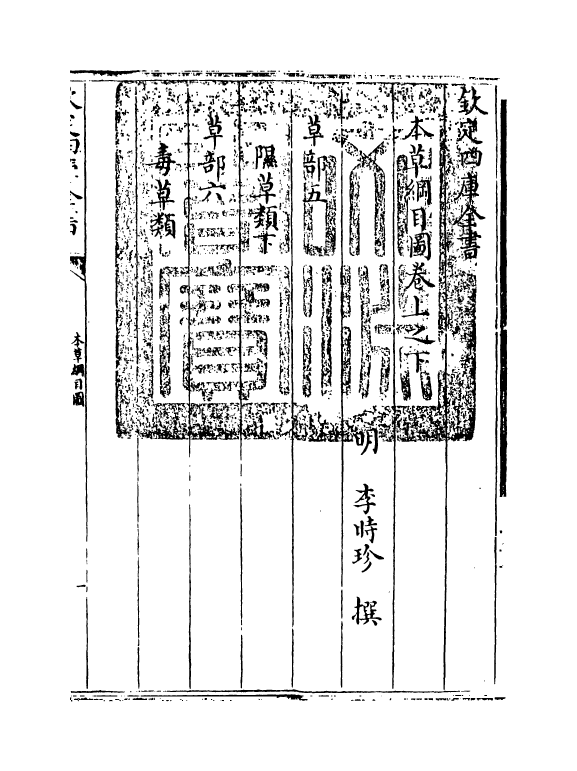 欽定四庫全書
本草綱目圖卷上之下
明 李時珍 撰
草部五
隰草類下
草部六
毒草類
欽定四庫全書
本草綱目圖
一